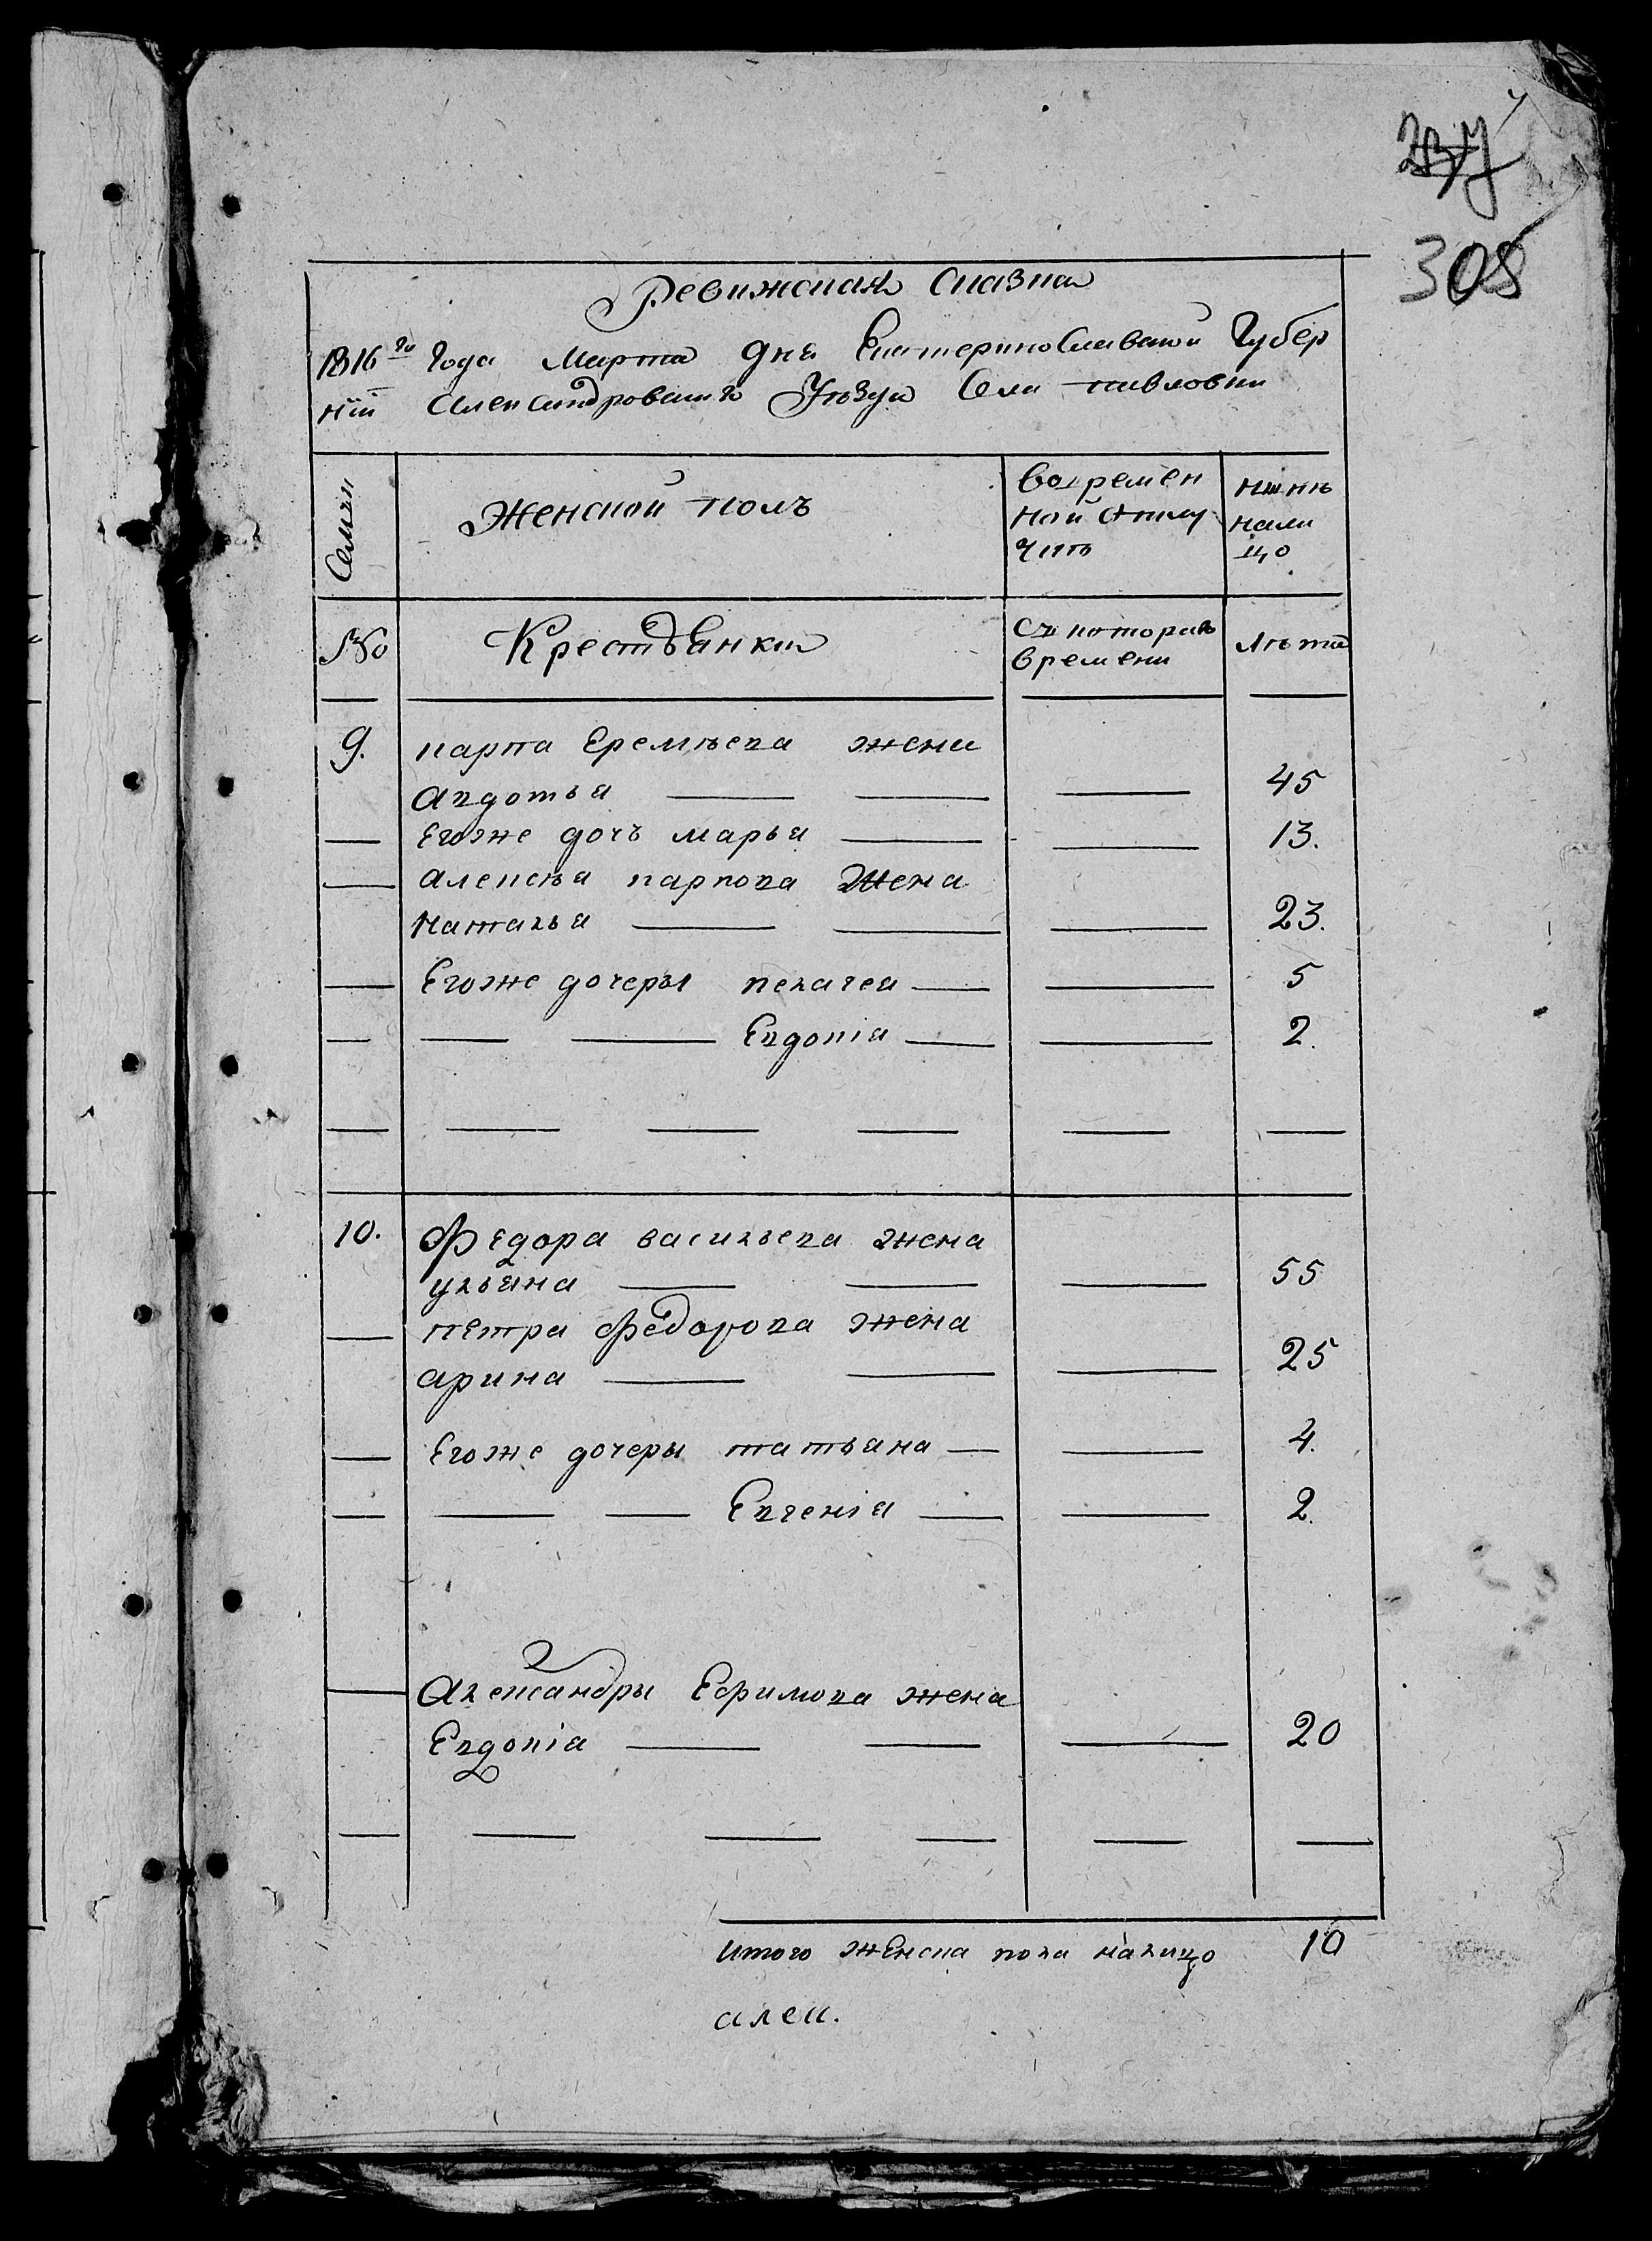 308
Ревижская Сказка
1816го Года Марта дня Екатеринославской Губер
нии Александровского Уезда Села павловки
Семьи
Женской полъ
Во времен
ной отлу
чкѣ
Нынѣ
нали
цо
№
Крестьянки
Съ котораго
времени
Лѣта
9. карпа Еремѣева жена
Авдотья — — — 45
— Егоже дочъ марья — — 13.
— алексѣя карпова Жена
Наталья — — — 23.
— Егоже дочеры пелагея — — 5
— — — Евдокія — — 2.
— — — — — —
10. Федора васильева жена
ульяна — — — 55
— петра Федорова жена
арина — — — 25
— Егоже дочеры татьяна — — 4.
— — — Евгенія — — 2.
— Александры Ефимова жена
Евдокія — — — 20
— — — — — —
итого женска пола налицо 10